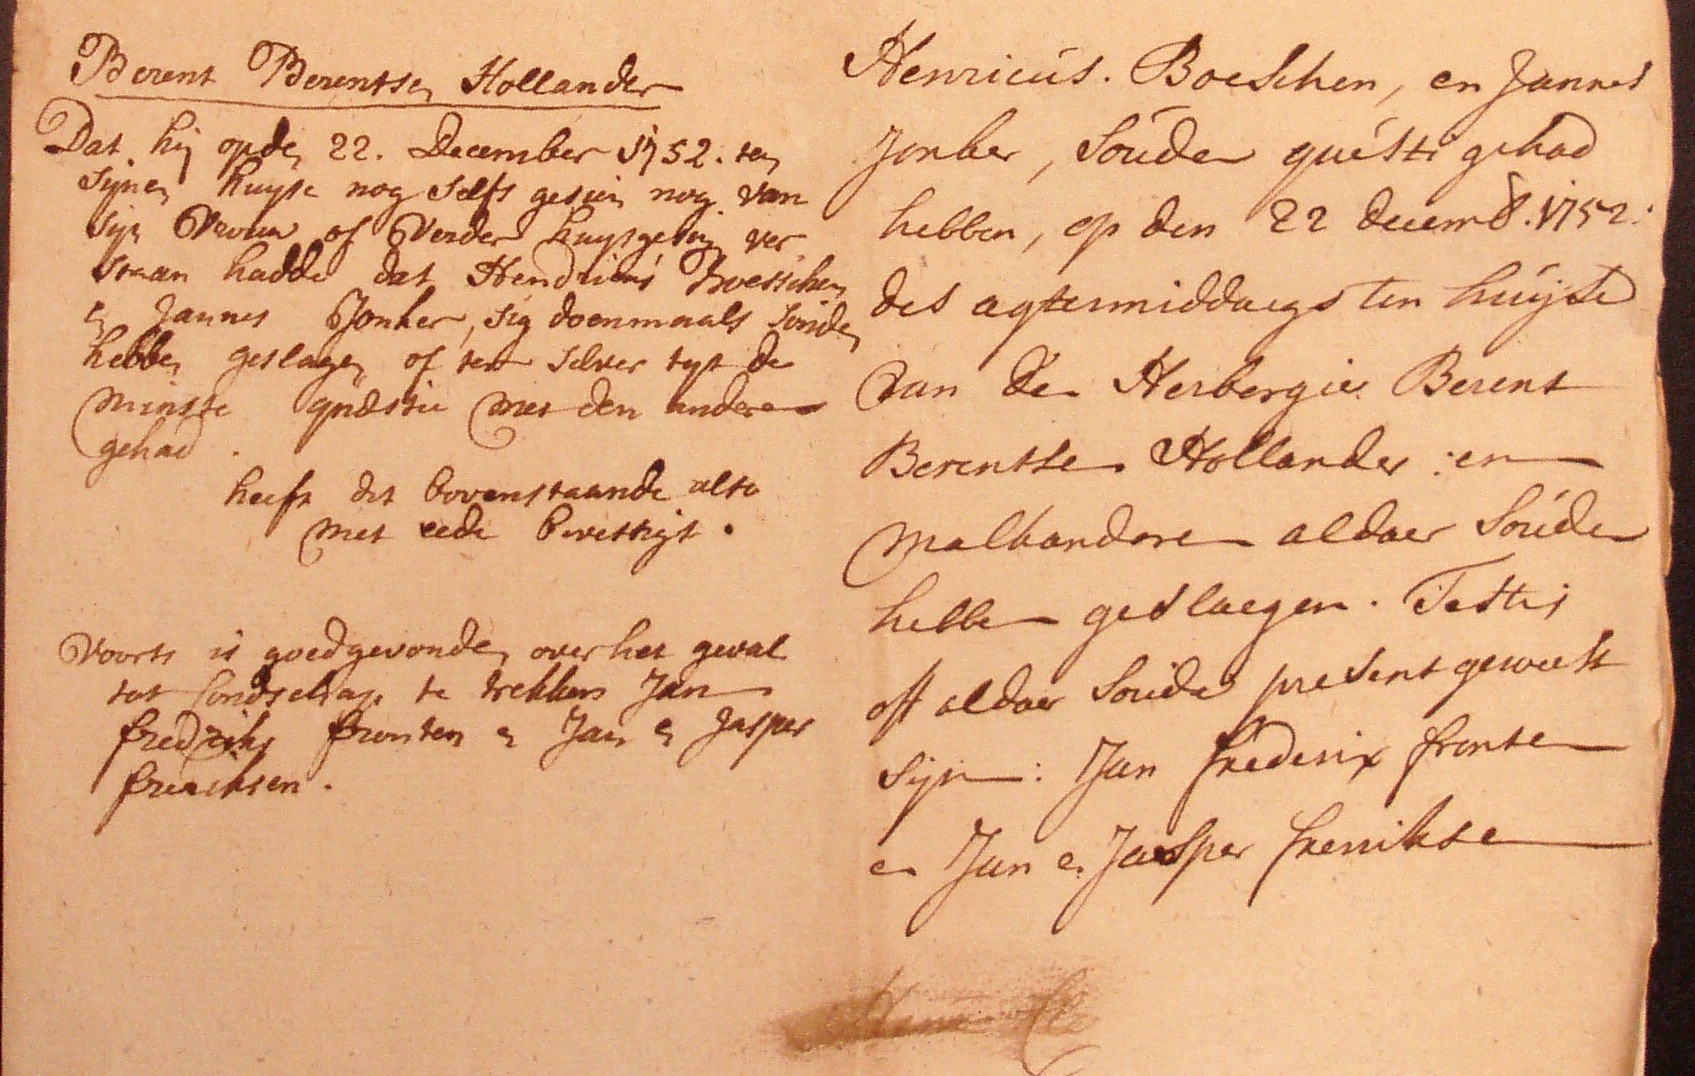 Berent Berentsen Hollander
Dat hij op den 22. December 1752. ten
sijnen huyse nog selfs gesien nog van
sijn Vrouw of Verder huysgesin ver
staan hadde dat Hendricus Boesschen
en Jannes Jonker, sig doenmaals souden
hebben geslagen of ter selver tyt de
minste quæstie met den anderen
gehad.
heeft dit bovenstaande alsoo
met eede bevestigt.
Voorts is goedgevonden over het geval
tot Landschap te trekken Jan
fredriks fronten en Jan en Jasper
freriksen.
Henricus. Boeschen, en Jannes
Jonker, Soúden questi gehad
hebben, op den 22 decemb. 1752.
des agtermiddaegs ten huijse
van de Herbergier Berent
Berentsen Hollander: en
malkanderen aldaer Soúden
hebben geslaegen. Testis
oft aldaer Souden present geweest
sijn: Jan frederix fronten
en Jan en Jasper freriksen